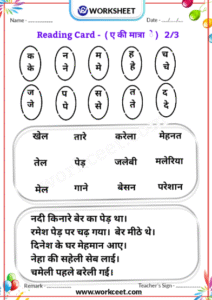 WORKSHEET
Name - Date -
Reading Card - ( ए की मात्रा े ) 2/3
क के न ने म मे ह हे च चे
ज जे प पे स से त ते द दे
खेल तारे करेला मेहनत
तेल पेड़ जलेबी मलेरिया
मेल गाने बेसन परेशान
नदी किनारे बेर का पेड़ था।
रमेश पेड़ पर चढ़ गया। बेर मीठे थे।
दिनेश के घर मेहमान आए।
नेहा की सहेली सेब लाई।
चमेली पहले बरेली गई।
Remark - Teacher's Sign -
www.workceet.com